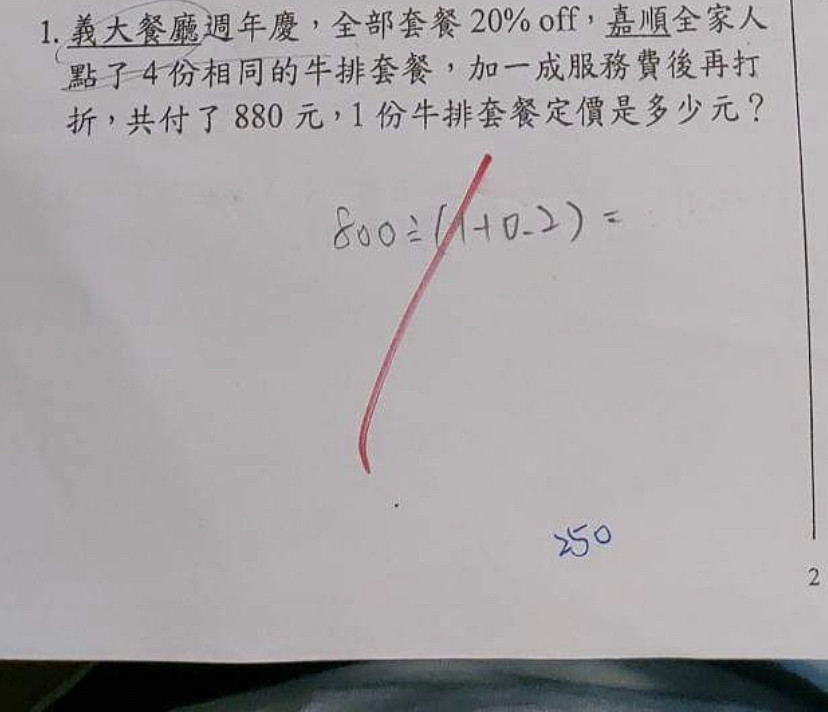 1. 義大餐廳週年慶，全部套餐 20% off，嘉順全家人
點了 4 份相同的牛排套餐，加一成服務費後再打
折，共付了 880 元，1 份牛排套餐定價是多少元？
800÷(1+0.2)=
250
2